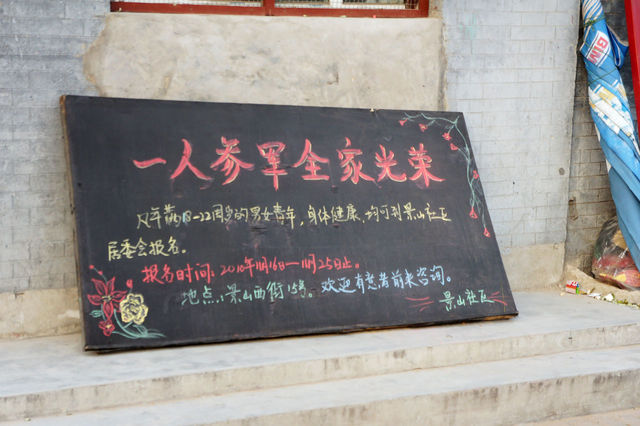 一人参军全家光荣
凡年满18-22周岁的男女青年，身体健康，均可到景山社区
居委会报名。
报名时间：2010年11月16日—11月25日止。
地点：景山西街15号。欢迎有意者前来咨询。
景山社区
BIM